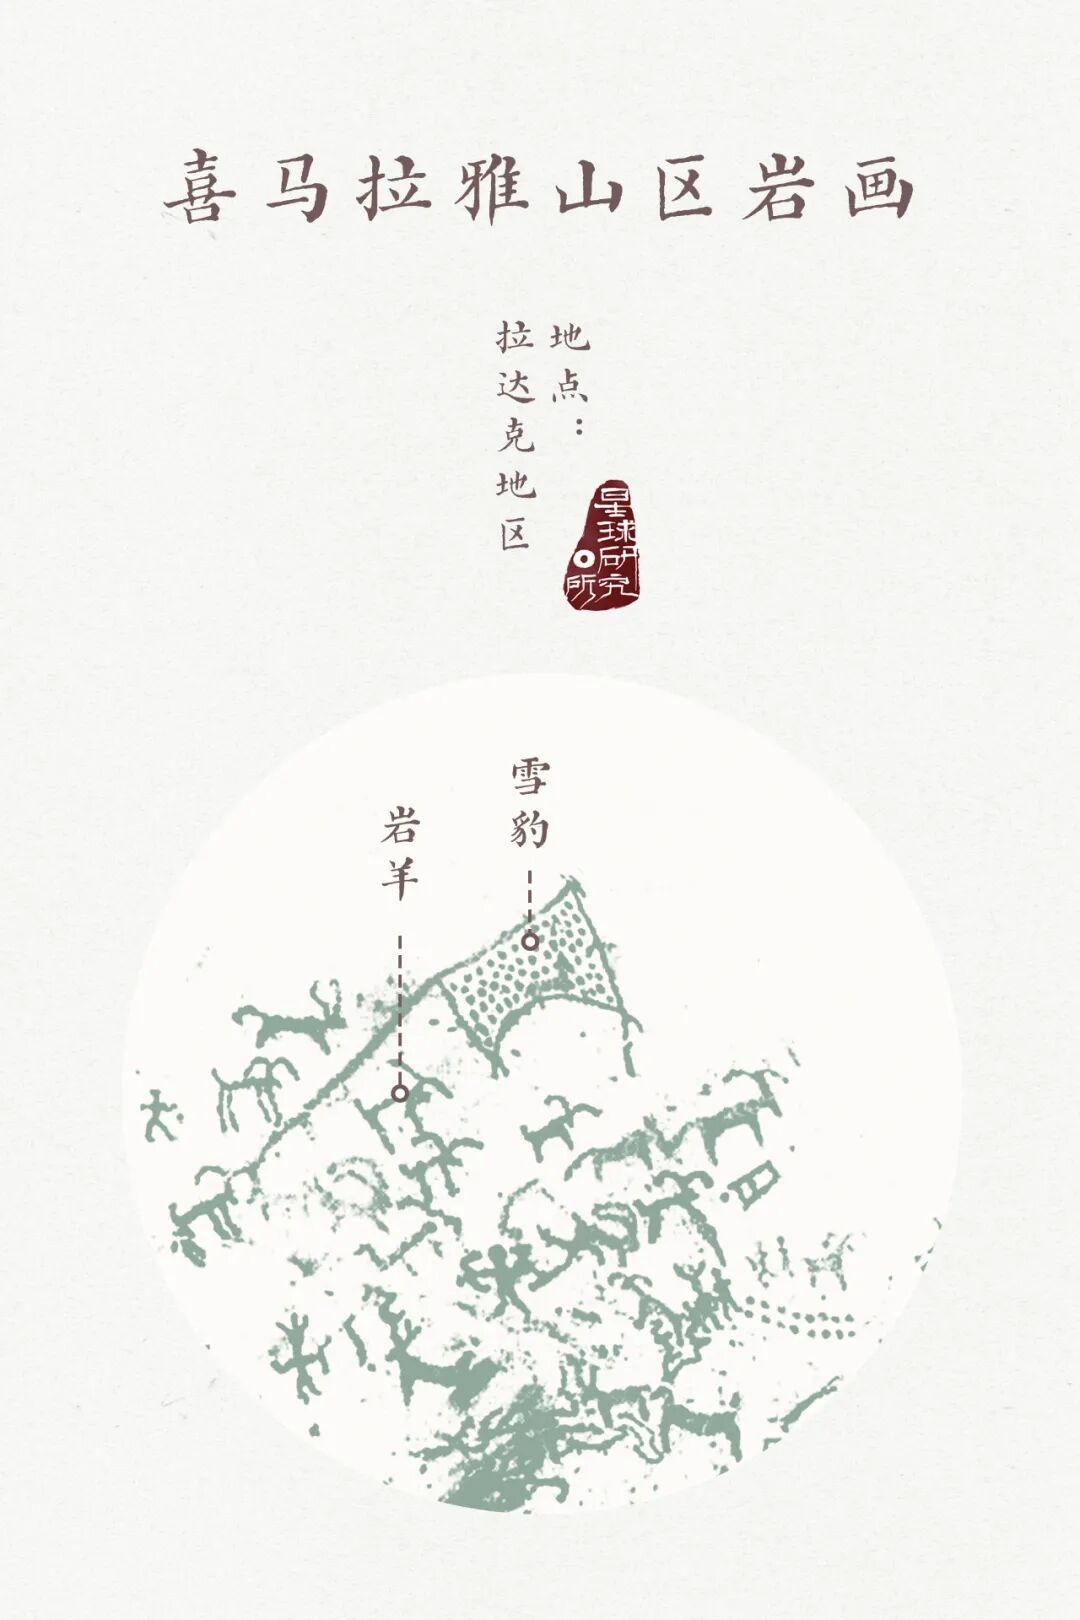 喜马拉雅山区岩画
地点：
拉达克地区
星球研究所
雪豹
岩羊